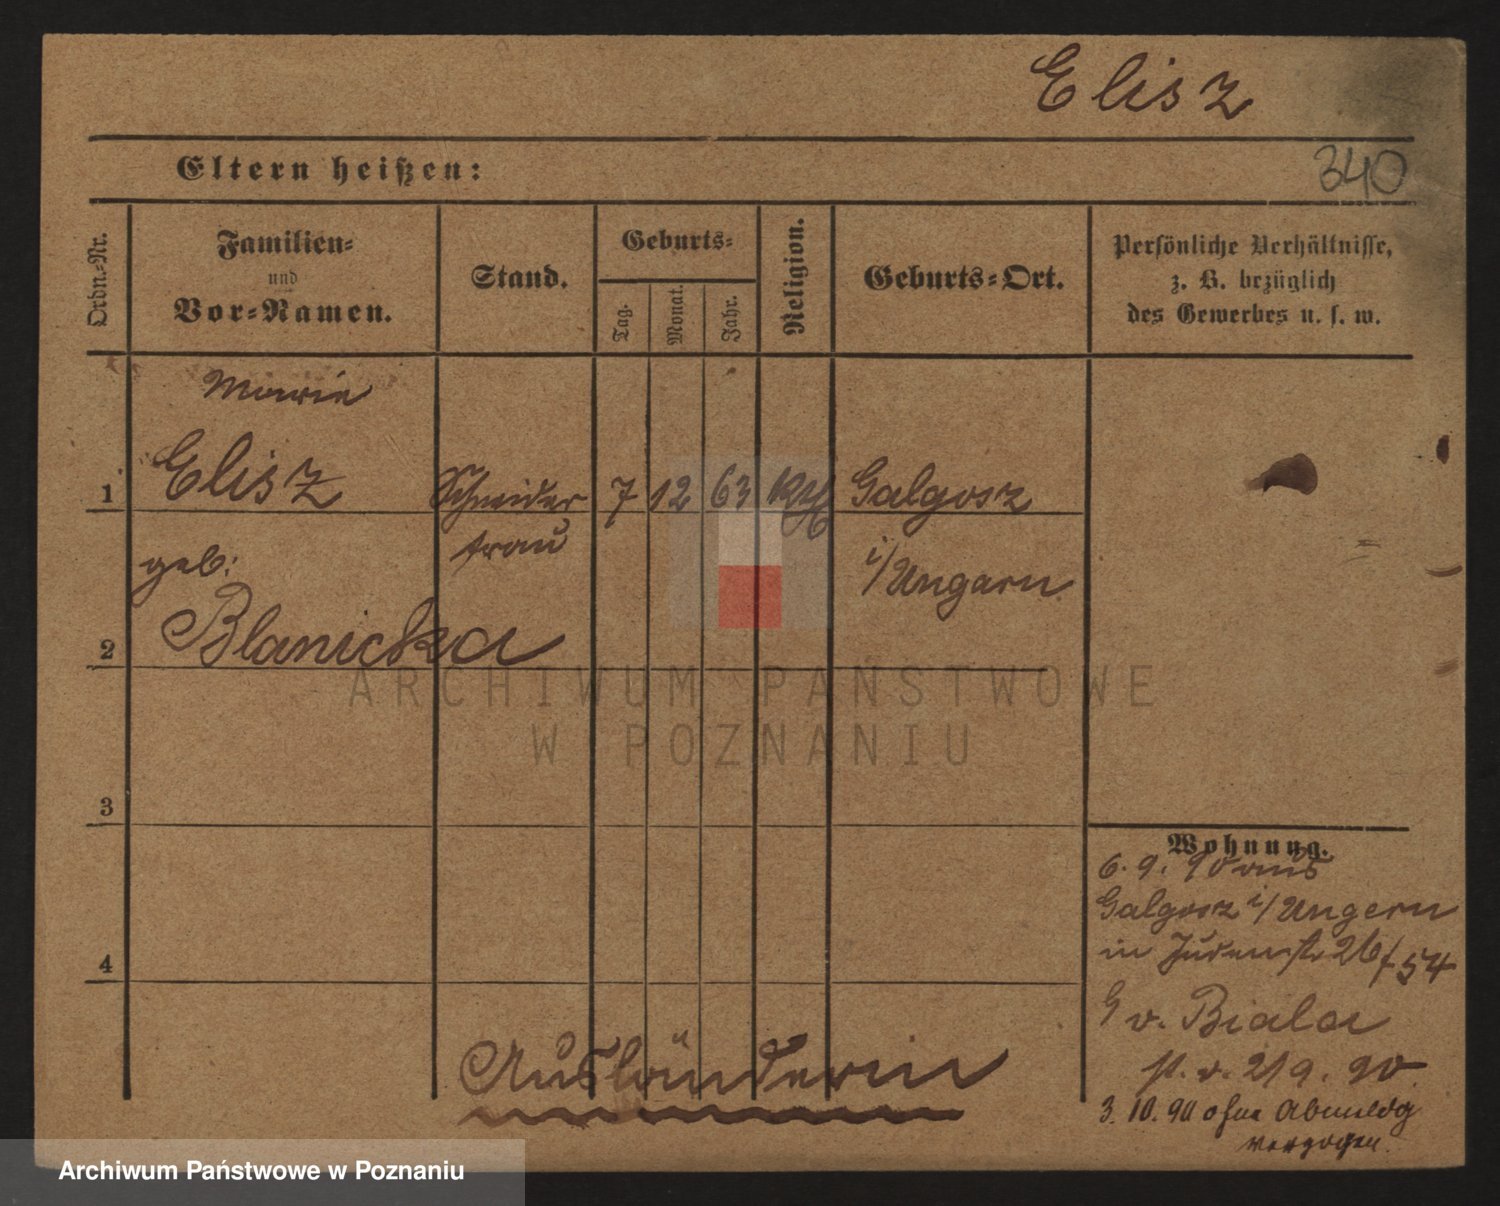 Elisz
Eltern heißen:
340
Ordn.-Nr.
Familien-
und
Vor-Namen.
Stand.
Geburts-
Tag.
Monat.
Jahr.
Religion.
Geburts-Ort.
Persönliche Verhältnisse,
z. B. bezüglich
des Gewerbes u. s. w.
Marie
1 Elisz Schneider 7 12 63 Kth Galgosz
geb: frau i/Ungarn
2 Blanicka
3
4
Ausländerin
Wohnung.
6. 9. 90 aus
Galgosz i/Ungern
in Judenstr 26/54
G v. Biala
p. v. 21 9. 90
3. 10. 90 ohne Abmeldg
verzogen.
ARCHIWUM PAŃSTWOWE
W POZNANIU
Archiwum Państwowe w Poznaniu